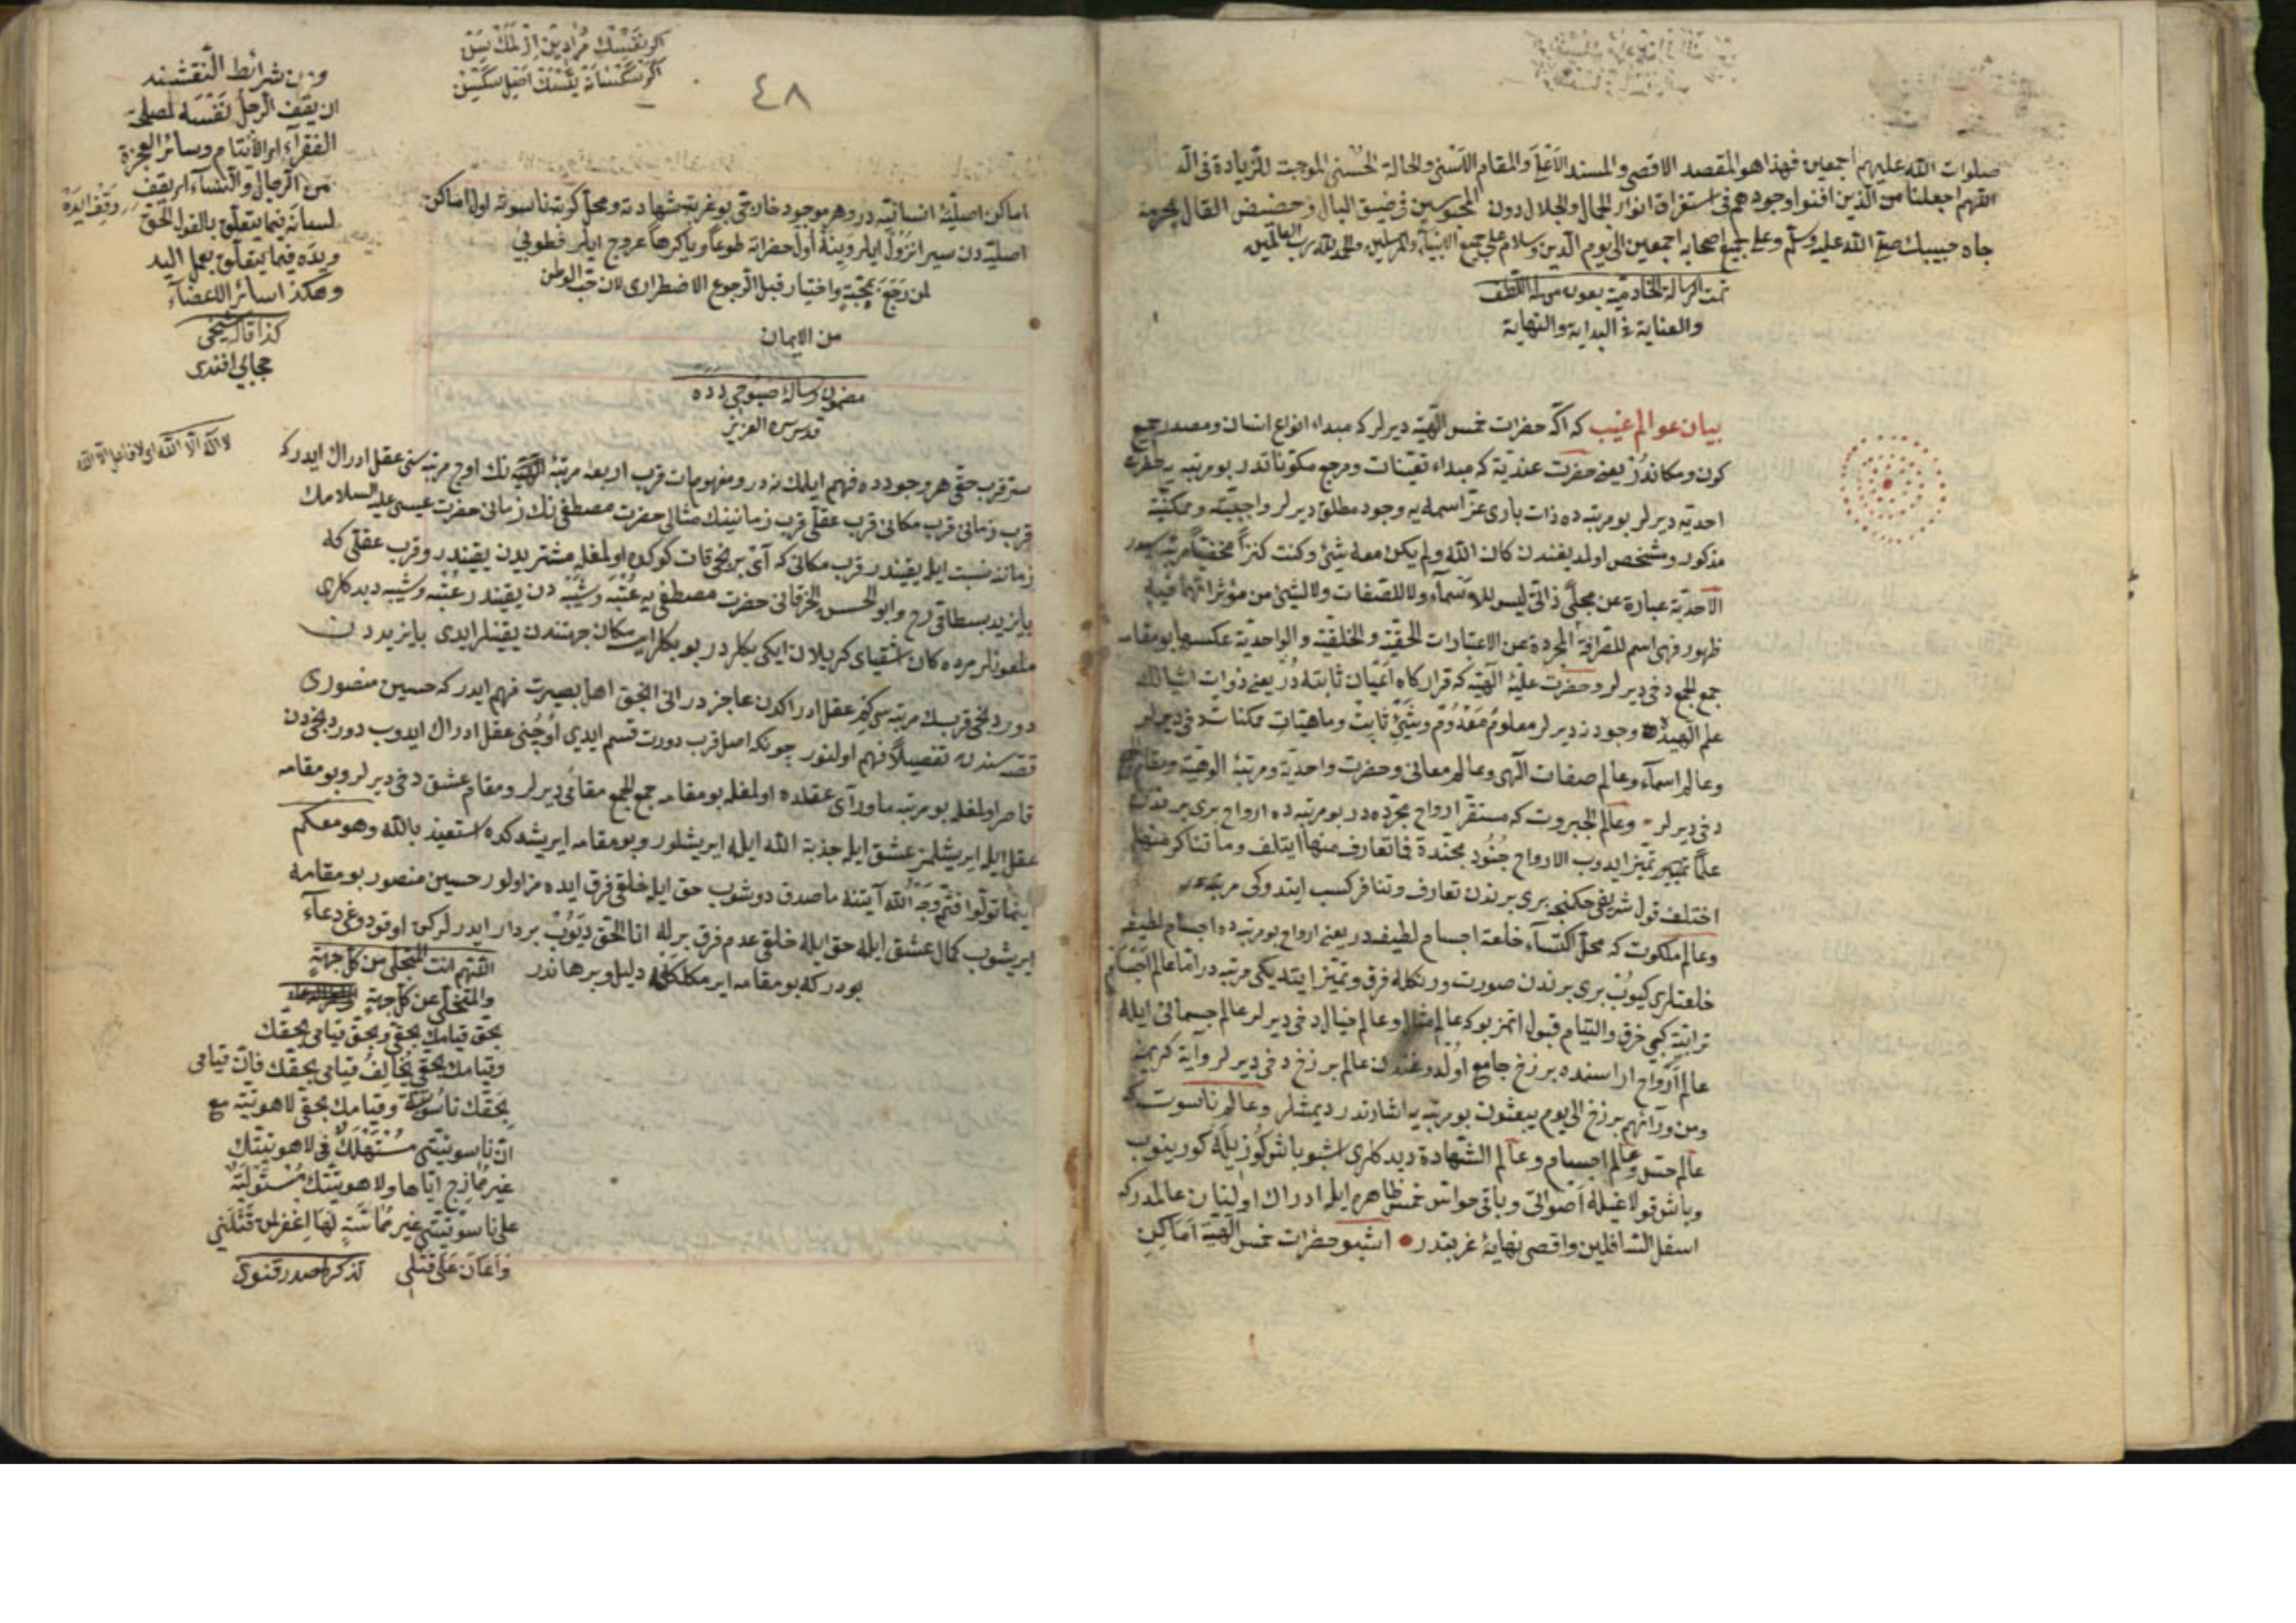 صلوات الله عليهم أجمعين فهذا هو المقصد الاقصى والمسند الأعلى والمقام الأسنى والحالة الحسنى الموجبة للزيادة فى
اللهم اجعلنا من الذين افنوا وجودهم فى استغراق انوار الجمال والجلال دون المحبوسين فى ضيق البال وحضيض القال بحرمة
جاه حبيبك صلى الله عليه وسلم وعلى جميع اصحابه اجمعين الى يوم الدين وسلام على جميع الانبياء والمرسلين والحمد لله رب العالمين
تمت الرسالة بعون من له اللطف
والعناية فى البداية والنهاية
بيان عوالم غيب كه اكه حضرات خمس الهيه ديرلر كه مبداء انواع انسان ومصدر جميع
كون ومكاندر يعنى حضرت عنديه كه مبداء تعينات ومرجع مكوناتدر بو مرتبه يه حضرت
احديه ديرلر بو مرتبه ده ذات بارى عز اسمه يه وجود مطلق ديرلر واجبيته وممكنيته
مذكور ومشخص اولمديغندن كان الله ولم يكن معه شئ وكنت كنزاً مخفياً مرتبه سيدر
الاحدية عبارة عن مجلى ذاتى ليس للاسماء ولا للصفات ولا لشئ من مؤثراتها فيه
ظهور فهى اسم للصرافة المجردة عن الاعتبارات الحقيه والخلقيه والواحدية عكسها بو مقامه
جمع الجمع دخى ديرلر وحضرت علمية الهيه كه قراركاه اعيان ثابته در يعنى ذوات اشيانك
علم الهيده وجودنه ديرلر معلوم معدوم وشئ ثابت وماهيات ممكنات دخى ديرلر
وعالم اسماء وعالم صفات الهى وعالم معانى وحضرت واحديه ومرتبه الوهيه ومقام
دخى ديرلر وعالم الجبروت كه مستقر ارواح مجرده در بو مرتبه ده ارواح برى برندن
علماً تمييز ايدوب الارواح جنود مجندة فما تعارف منها ايتلف وما تناكر منها
اختلف قول شريفى حكمنجه برى برندن تعارف وتنافر كسب ايتدوكى مرتبه در
وعالم ملكوت كه محل اكتساء خلعة اجسام لطيفه در يعنى ارواح بو مرتبه ده اجسام لطيفه
خلعتلرى كيوب برى برندن صورت ورنكله فرق وتميز ايتديكى مرتبه در اما عالم اجسام
ترابيه كبى خرق والتيام قبول اتمز بوكه عالم مثال وعالم خيال دخى ديرلر عالم جسمانى ايله
عالم ارواح اراسنده برزخ جامع اولدوغندن عالم برزخ دخى ديرلر واية كريمه
ومن ورائهم برزخ الى يوم يبعثون بو مرتبه يه اشارتدر ديمشلر وعالم ناسوت كه
عالم حس وعالم اجسام وعالم الشهادة ديدكلرى اشبو باش كوزيله كورينوب
وباش قولاغيله اصواتى وباقى حواس خمس ظاهره ايله ادراك اولنان عالمدر كه
اسفل السافلين واقصى نهاية غربتدر اشبو حضرات خمس الهيه اماكن
اكر نفسك مراديدن
اكر
٤٨
اماكن اصليه انسانيه در وهر موجود خارجى بو غربت شهادته ومحل كربه ناسوته اول اماكن
اصليه دن سير انزول ايلر وينه اول حضراته طوعاً وياكرهاً عروج ايلر فطوبى
لمن رجع بمحبة واختيار قبل الرجوع الاضطرارى لان حب الوطن
من الايمان
مضمون رساله صبوحى دده
قدس سره العزيز
سر قرب حق هر وجودده فهم ايلمك نه در ومفهومات قرب اربعه مرتبه الهيه نك اوچ مرتبه سنى عقل ادراك ايدر كه
قرب زمانى قرب مكانى قرب عقلى قرب زمانينك مثالى حضرت مصطفى نك زمانى حضرت عيسى عليه السلامك
زمانه نسبت ايله يقيندر قرب مكانى كه آى برنجى قات كوكده اولمغله مشتريدن يقيندر وقرب عقلى كه
بايزيد بسطامى رح وابو الحسن الخرقانى حضرت مصطفى يه عتبه وشيبه دن يقيندر عتبه وشيبه ديدكلرى
دور دنجى قربك مرتبه سى كيم عقل ادراكدن عاجزدر انى انجق اهل بصيرت فهم ايدر كه حسين منصورى
قصه سندن تفصيلاً فهم اولنور چونكه اصل قرب دورت قسم ايدى اوچنى عقل ادراك ايدوب دوردنجيدن
قاصر اولمغله بو مرتبه ماوراى عقلده اولمغله بو مقامه جمع الجمع مقامى ديرلر ومقام عشق دخى ديرلر وبو مقامه
عقل ايله ايريشلمز عشق ايله جذبة الله ايله ايريشلور وبو مقامه ايريشدكده استعيذ بالله وهو معكم
اينما تولوا فثم وجه الله آيتنه ماصدق دوشوب حق ايله خلقى فرق ايده مز اولور حسين منصور بو مقامه
ايريشوب كمال عشق ايله حق ايله خلقى عدم فرق برله انا الحق ديوب بردار ايدرلركن اوقودوغى دعاء
بودر كه بو مقامه ايرمكلكنه دليل وبرهاندر
اللهم انت المتجلى من كل جهة
والمتخلى عن كل جهة
بحق قيامك بحقى وبحق قيامى بحقك
وقيامك بحقى يخالف قيامى بحقك فان قيامى
بحقك ناسوتية وقيامك بحقى لاهوتيه مع
ان ناسوتيتى مستهلك فى لاهوتيتك
غير ممازج اياها ولاهوتيتك مستولية
على ناسوتيتى غير مماسة لها اغفر لمن قتلنى
واعان على قتلى
ومن شرائط النقشبند
ان يقف الرجل نفسه لمصلحة
الفقراء او الأيتام وسائر العجزة
من الرجال والنساء اى يقف
لسانه فيما يتعلق بالقول الحق
ويده فيما يتعلق بعمل اليد
وهكذا سائر الاعضاء
كذا قاله شيخى
افندى
لا اله الا الله اى لا فاعل الا الله